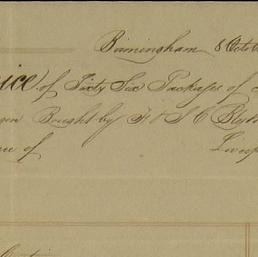 Birmingham 8 Octob
ice of Sixty Six Packages of
Bought by F. & S. C. Blyth
of Liverp